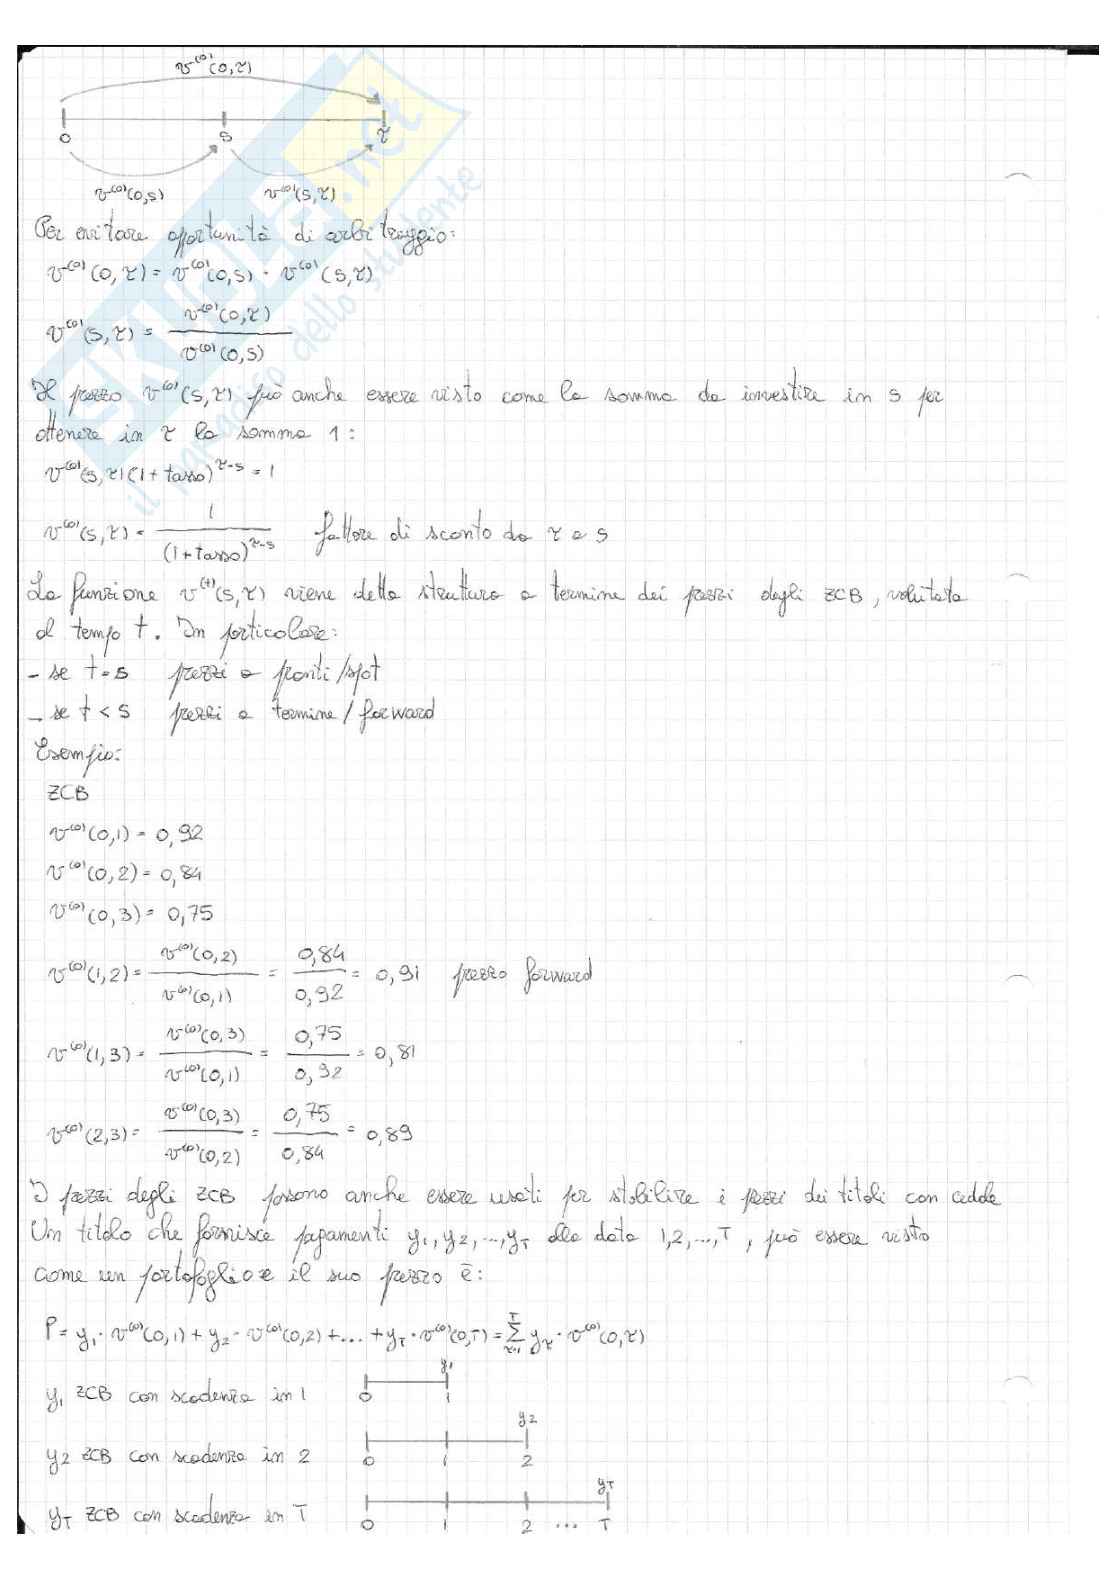 v⁽⁰⁾(0,τ)
0 s τ
v⁽⁰⁾(0,s) v⁽⁰⁾(s,τ)
Per evitare opportunità di arbitraggio:
v⁽⁰⁾(0,τ) = v⁽⁰⁾(0,s) · v⁽⁰⁾(s,τ)
v⁽⁰⁾(s,τ) = v⁽⁰⁾(0,τ) / v⁽⁰⁾(0,s)
Il prezzo v⁽⁰⁾(s,τ) può anche essere visto come la somma da investire in s per
ottenere in τ la somma 1:
v⁽⁰⁾(s,τ)(1+tasso)^(τ-s) = 1
v⁽⁰⁾(s,τ) = 1 / (1+tasso)^(τ-s) fattore di sconto da τ a s
La funzione v⁽ᵗ⁾(s,τ) viene detta struttura a termine dei prezzi degli ZCB, valutata
al tempo t. In particolare:
- se t=s prezzi a pronti/spot
- se t<s prezzi a termine/forward
Esempio:
ZCB
v⁽⁰⁾(0,1) = 0,92
v⁽⁰⁾(0,2) = 0,84
v⁽⁰⁾(0,3) = 0,75
v⁽⁰⁾(1,2) = v⁽⁰⁾(0,2) / v⁽⁰⁾(0,1) = 0,84 / 0,92 = 0,91 prezzo forward
v⁽⁰⁾(1,3) = v⁽⁰⁾(0,3) / v⁽⁰⁾(0,1) = 0,75 / 0,92 = 0,81
v⁽⁰⁾(2,3) = v⁽⁰⁾(0,3) / v⁽⁰⁾(0,2) = 0,75 / 0,84 = 0,89
I prezzi degli ZCB possono anche essere usati per stabilire i prezzi dei titoli con cedole
Un titolo che fornisce pagamenti y₁, y₂, ..., y_T alla data 1,2,...,T, può essere visto
come un portafoglio e il suo prezzo è:
P = y₁ · v⁽⁰⁾(0,1) + y₂ · v⁽⁰⁾(0,2) + ... + y_T · v⁽⁰⁾(0,T) = Σ_{τ=1}^{T} y_τ · v⁽⁰⁾(0,τ)
y₁ ZCB con scadenza in 1 0 1 y₁
y₂ ZCB con scadenza in 2 0 1 2 y₂
y_T ZCB con scadenza in T 0 1 2 ... T y_T
SKUOLA.net
il paradiso dello studente